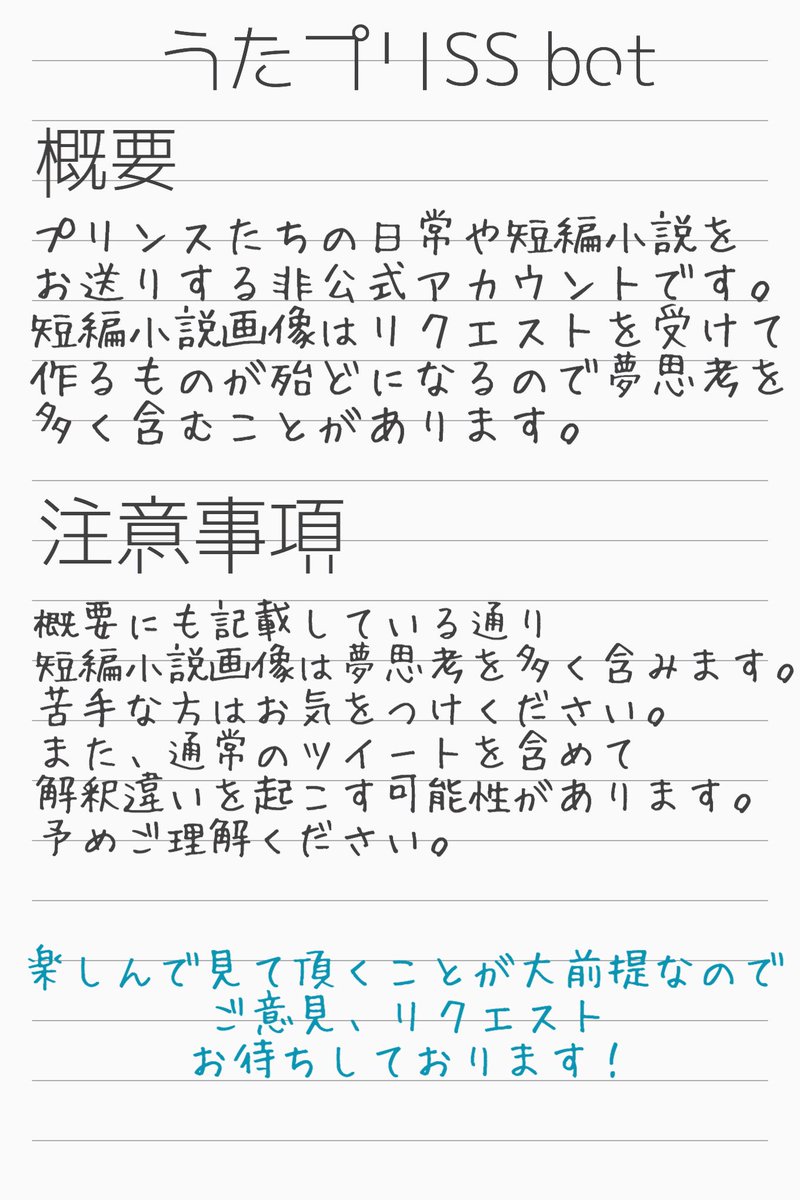 うたプリSS bot
概要
プリンスたちの日常や短編小説を
お送りする非公式アカウントです。
短編小説画像はリクエストを受けて
作るものが殆どになるので夢思考を
多く含むことがあります。
注意事項
概要にも記載している通り
短編小説画像は夢思考を多く含みます。
苦手な方はお気をつけください。
また、通常のツイートを含めて
解釈違いを起こす可能性があります。
予めご理解ください。
楽しんで見て頂くことが大前提なので
ご意見、リクエスト
お待ちしております!